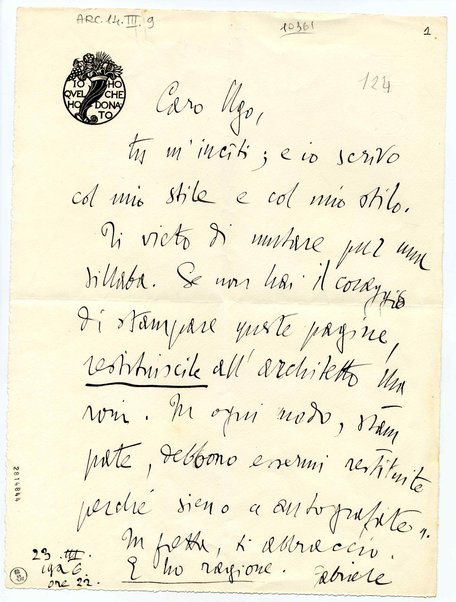 ARC.14.III.9
10361
1
124
IO HO
QUEL CHE
HO DONA
TO
Caro Ugo,
tu m'inciti; e io scrivo
col mio stile e col mio stilo.
Ti vieto di mutare pur una
sillaba. Se non hai il coraggio
di stampare queste pagine,
restituiscile all'architetto Ma
roni. In ogni modo, stam
pate, debbono essermi restituite
perché sieno autografate.
In fretta, ti abbraccio.
E ho ragione. Gabriele
23. III.
1926.
ore 22.
2814844